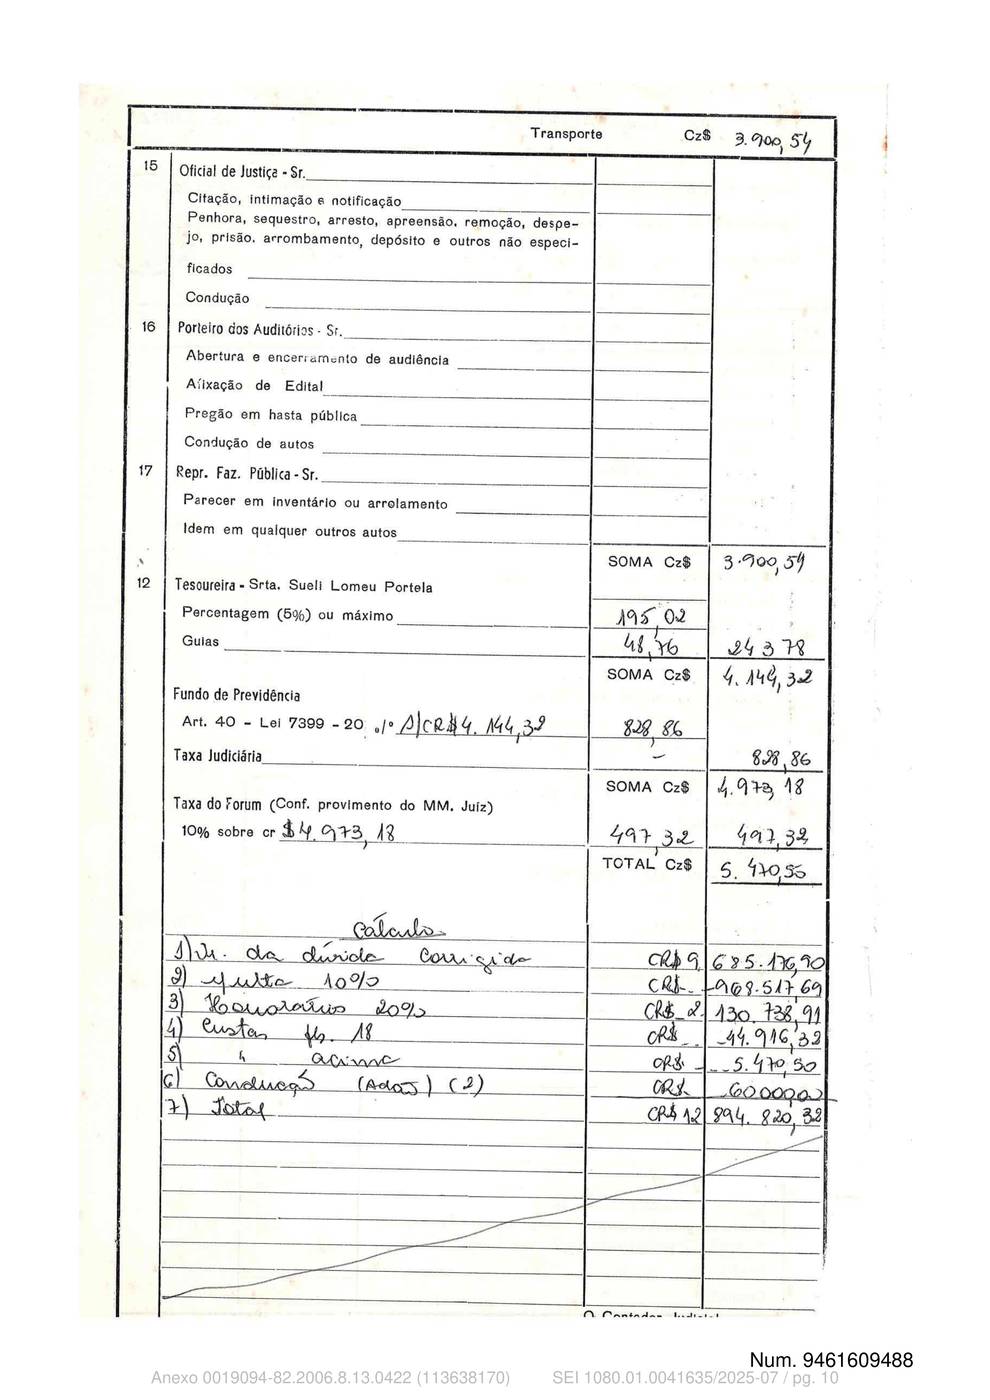 Transporte Cz$ 3.900,54
15 Oficial de Justiça - Sr.
Citação, intimação e notificação
Penhora, sequestro, arresto, apreensão, remoção, despe-
jo, prisão, arrombamento, depósito e outros não especi-
ficados
Condução
16 Porteiro dos Auditórios - Sr.
Abertura e encerramento de audiência
Afixação de Edital
Pregão em hasta pública
Condução de autos
17 Repr. Faz. Pública - Sr.
Parecer em inventário ou arrolamento
Idem em qualquer outros autos
SOMA Cz$ 3.900,54
12 Tesoureira - Srta. Sueli Lomeu Portela
Percentagem (5%) ou máximo 195,02
Guias 48,76 243 78
SOMA Cz$ 4.144,32
Fundo de Previdência
Art. 40 - Lei 7399 - 20 º/º S/CR$4.144,32 828,86
Taxa Judiciária - 828,86
SOMA Cz$ 4.973,18
Taxa do Forum (Conf. provimento do MM. Juiz)
10% sobre cr $4.973,18 497,32 497,32
TOTAL Cz$ 5.470,50
Cálculo
1) Vr. da dívida corrigida CR$ 9.685.176,90
2) Multa 10% CR$ 968.517,69
3) Honorários 20% CR$ 2.130.738,91
4) Custas fls. 18 CR$ 44.916,32
5) " acima CR$ 5.470,50
6) Condução (Adão) (2) CR$ 60000,00
7) Total CR$ 12 894.820,32
O Contador Judicial
Num. 9461609488
Anexo 0019094-82.2006.8.13.0422 (113638170) SEI 1080.01.0041635/2025-07 / pg. 10